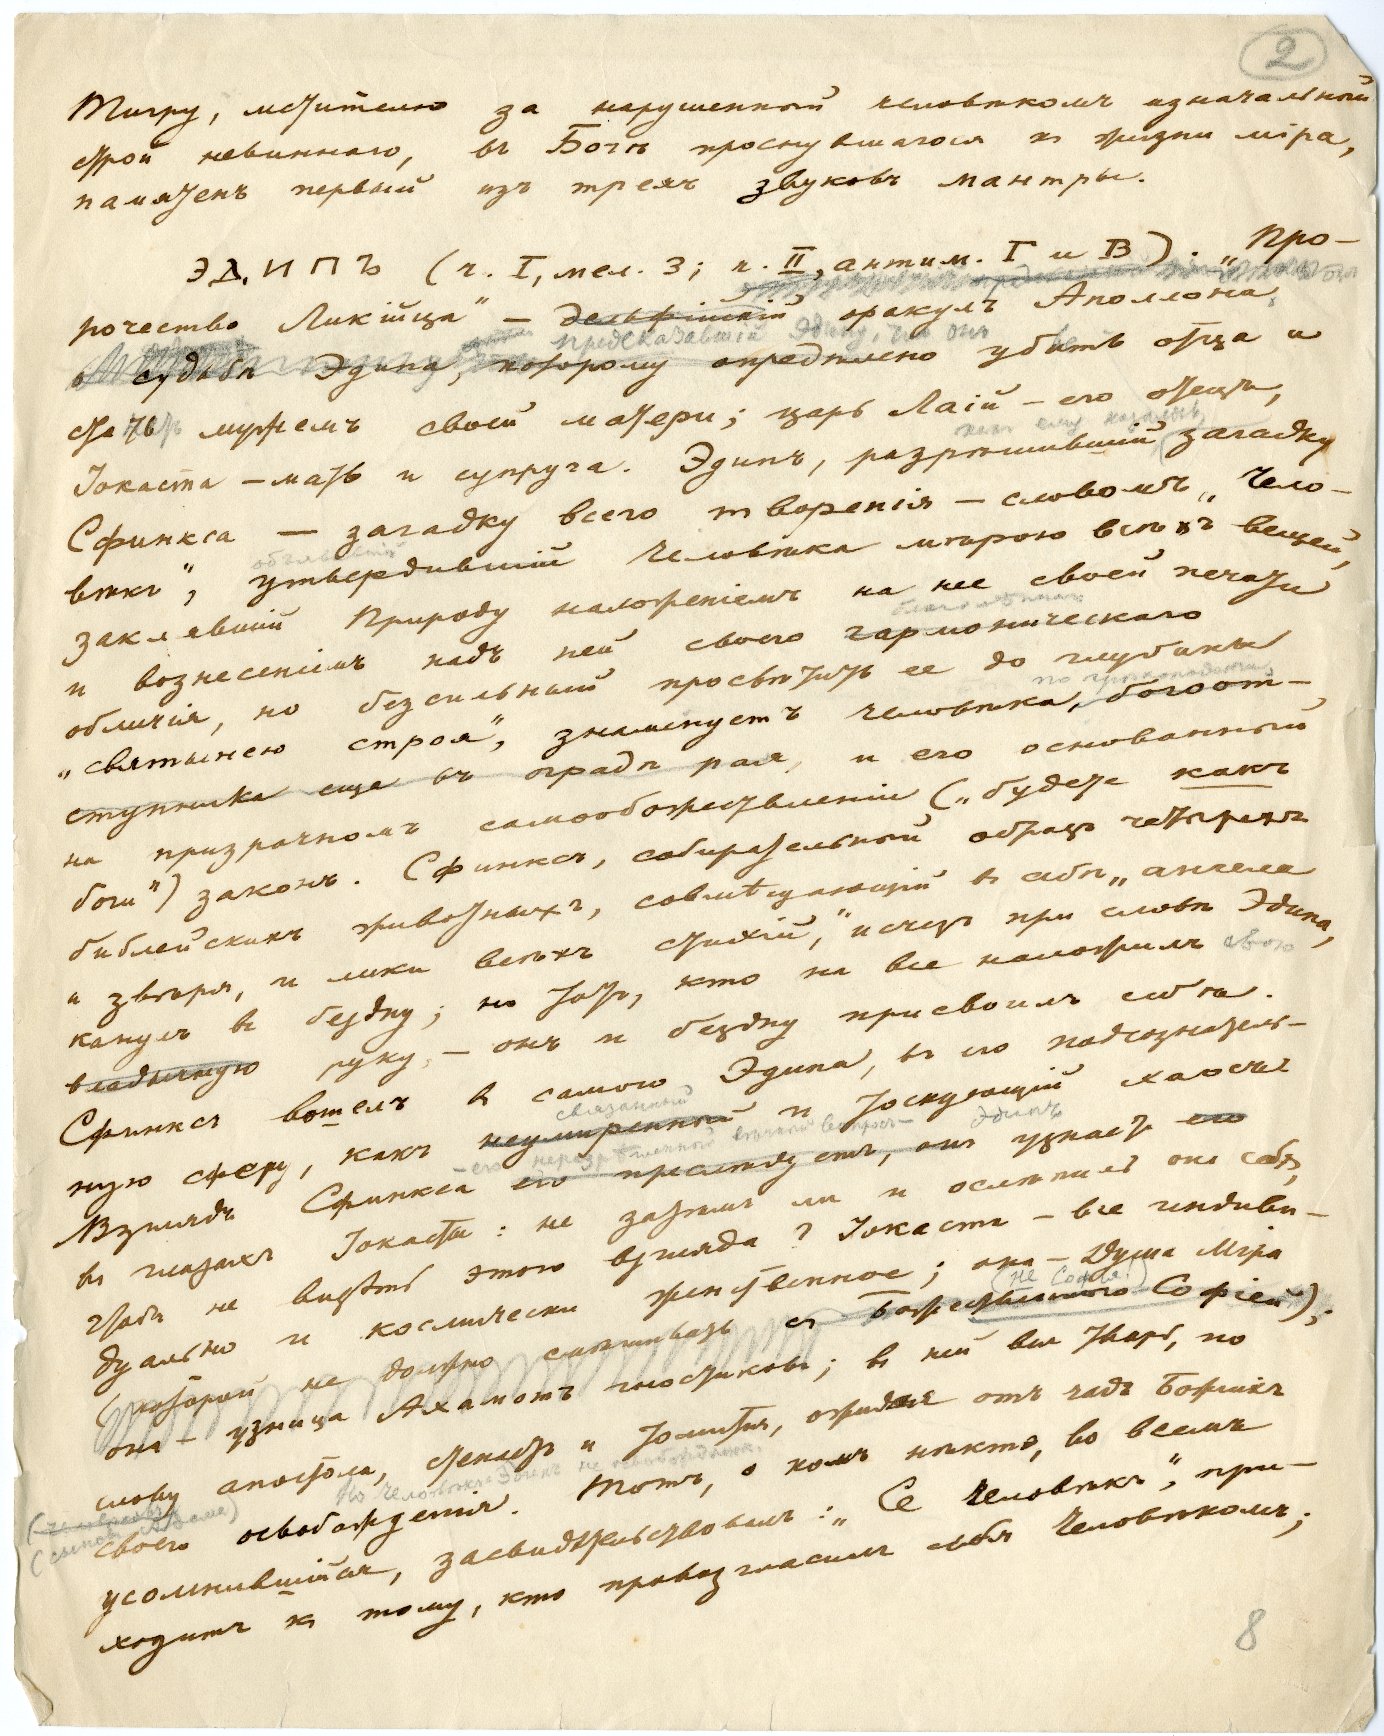 2
Тигру, мстителю за нарушенный человѣкомъ изначальный
строй невиннаго, въ Богѣ проснувшагося къ жизни міра,
памятенъ первый изъ трехъ звуковъ мантры.
ЭДИПЪ (ч. I, мел. 3; ч. II, антим. Г и В). „Про-
рочество Ликійца" — дельфійскій оракулъ Аполлона,
предсказавшій Эдипу, что онъ
о судьбѣ Эдипа, которому опредѣлено убить отца и
стать мужемъ своей матери; царь Лаій — его отецъ,
Іокаста — мать и супруга. Эдипъ, разрѣшившій загадку
Сфинкса — загадку всего творенія — словомъ „Чело-
вѣкъ", утвердившій Человѣка мѣрою всѣхъ вещей,
заклявшій Природу наложеніемъ на нее своей печати
и вознесеніемъ надъ ней своего гармоническаго
обличія, но безсильный просвѣтить ее до глубины
„святынею строя", знаменуетъ человѣка, богоот-
ступника еще въ оградѣ рая, и его основанный
на призрачномъ самообожествленіи („будете какъ
боги") законъ. Сфинксъ, собирательный образъ четырехъ
библейскихъ животныхъ, совмѣщающій въ себѣ „ангела
и звѣря, и лики всѣхъ стихій," исчезъ при словѣ Эдипа,
канулъ въ бездну; но тотъ, кто на все наложилъ свою
владычную руку, — онъ и бездну присвоилъ себѣ.
Сфинксъ вошелъ въ самого Эдипа, въ его подсознатель-
связанный
ную сферу, какъ неумиренный и тоскующій хаосъ.
— его неразрѣшенный вѣчный вопросъ — Эдипъ
Взглядъ Сфинкса его преслѣдуетъ, онъ узнаетъ его
въ глазахъ Іокасты: не затѣмъ ли и ослѣпилъ онъ себя,
чтобы не видѣть этого взгляда? Іокаста — все индиви-
дуально и космически женственное; она — Душа Міра
(не Софія!)
(которой не должно смѣшивать съ Божественною Софіей);
она — узница Ахамотъ гностиковъ; въ ней вся тварь, по
слову апостола, стенаетъ и томится, ожидая отъ чадъ Божіихъ
Но Человѣкъ-Эдипъ не освобожденъ.
своего освобожденія. Тотъ, о комъ нѣкто, во всемъ
усомнившійся, засвидѣтельствовалъ: „Се Человѣкъ", при-
ходитъ къ тому, кто провозгласилъ себя Человѣкомъ;
8